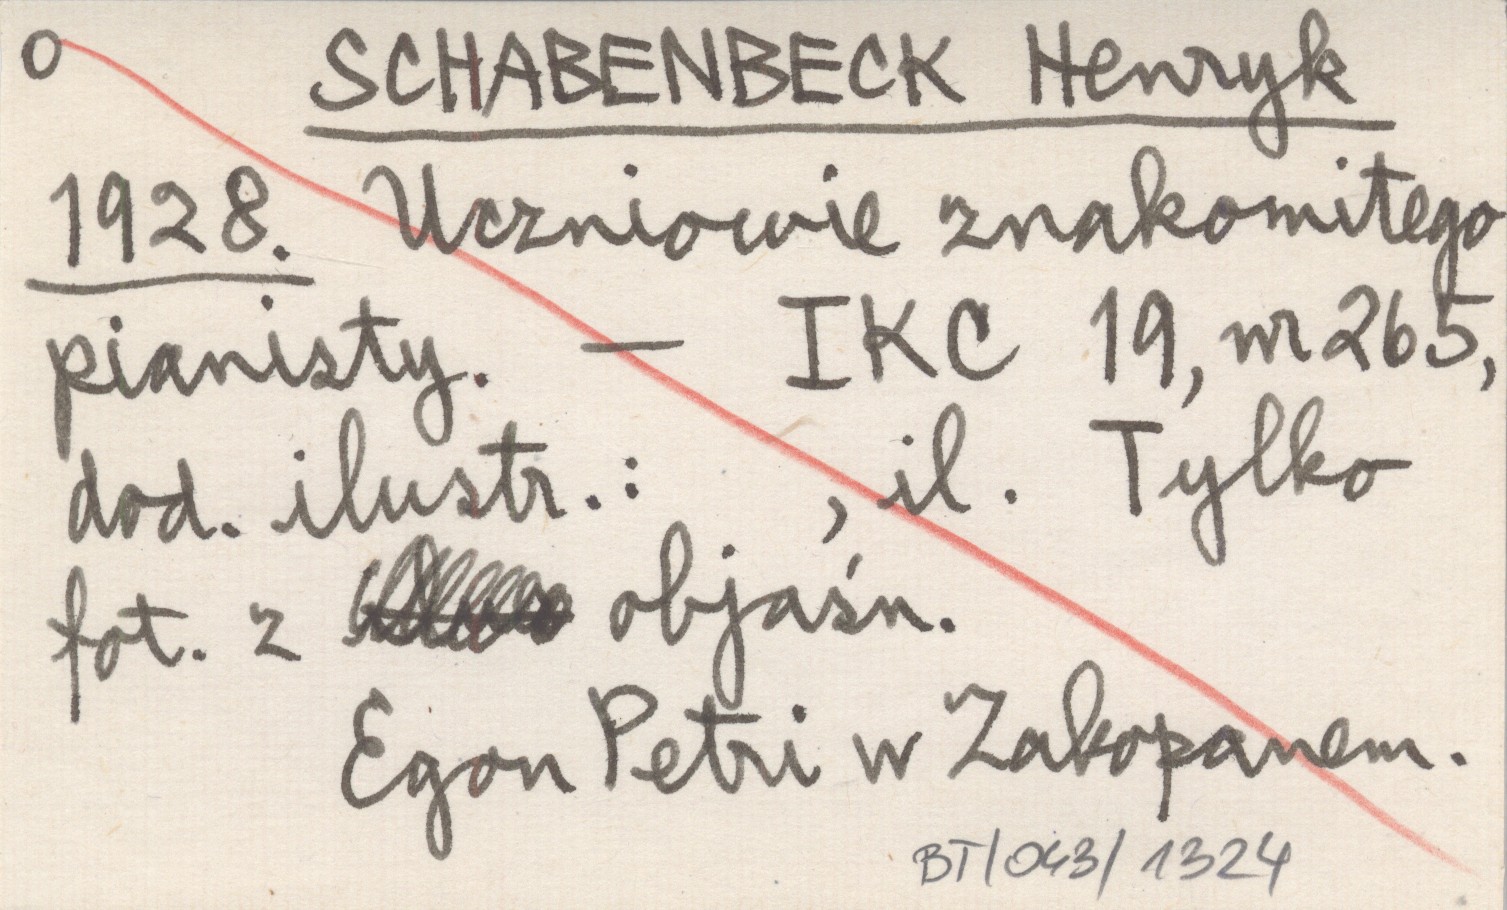 o SCHABENBECK Henryk
1928. Uczniowie znakomitego
pianisty. — IKC 19, nr 265,
dod. ilustr.: , il. Tylko
fot. z objaśn.
Egon Petri w Zakopanem.
BT/043/1324